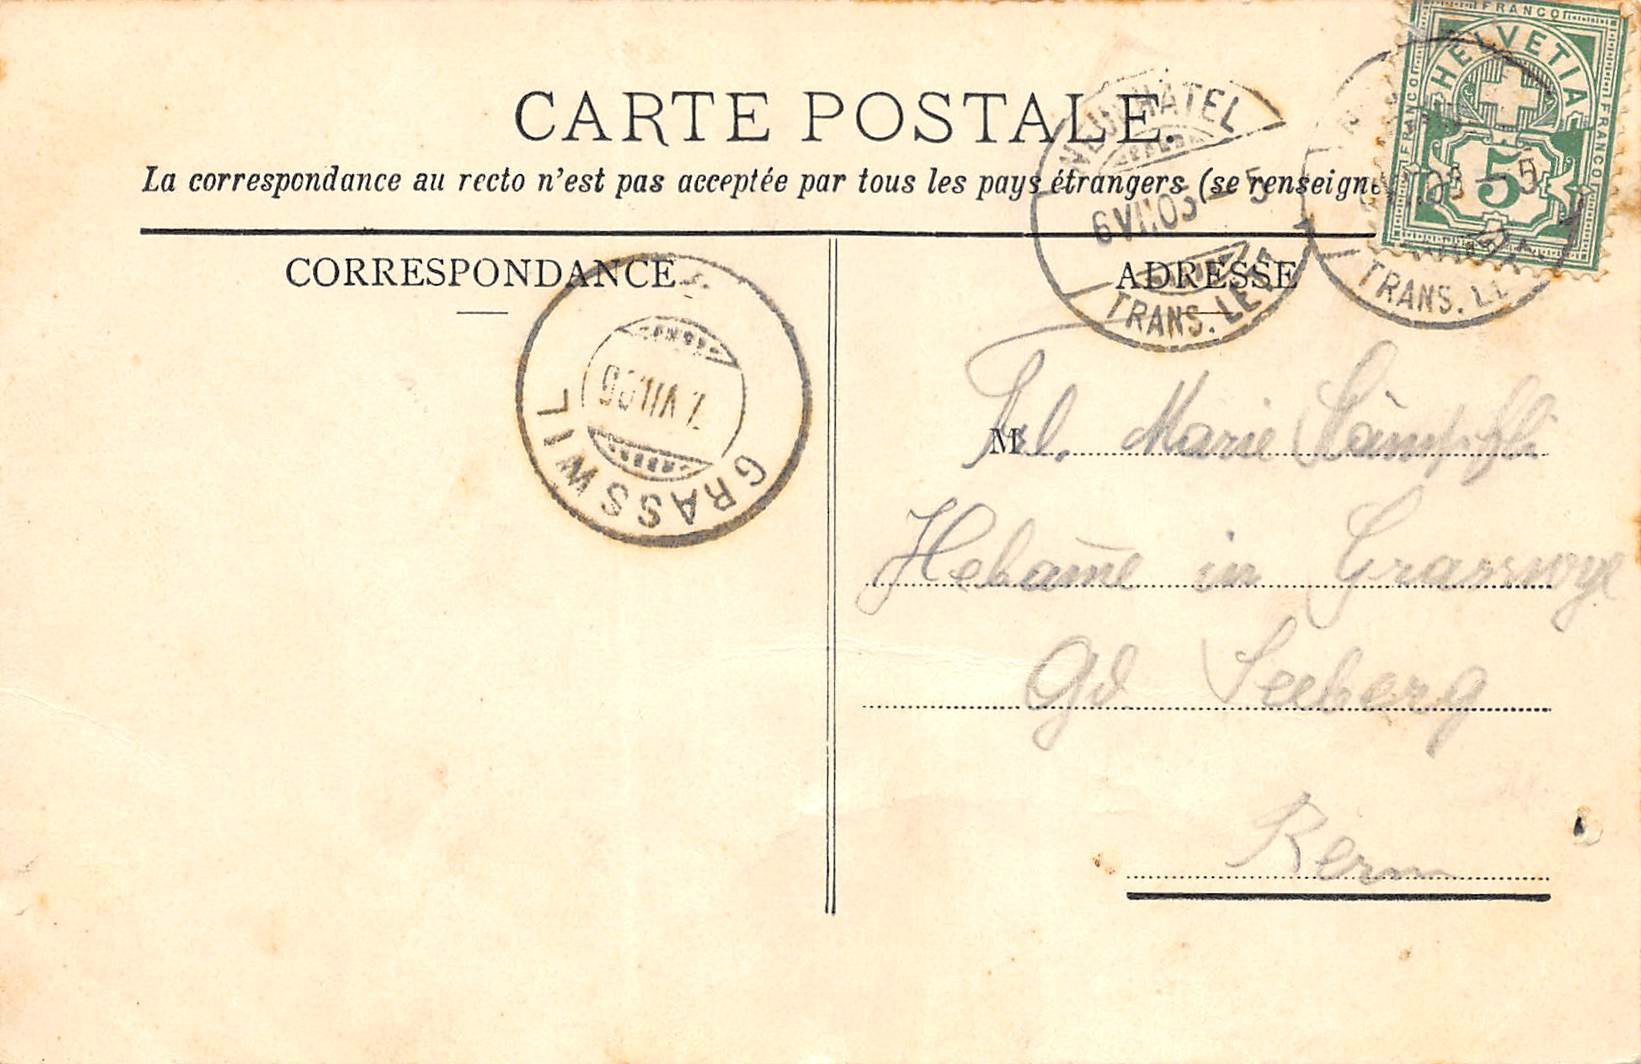 CARTE POSTALE.
La correspondance au recto n'est pas acceptée par tous les pays étrangers (se renseigne
CORRESPONDANCE
ADRESSE
FRANCO
HELVETIA
FRANCO
FRANCO
5
NEUCHATEL
6 VII.05 – 5
TRANS. LETT
VII.05 – 5
TRANS. LE
GRASSWIL
7. VII.05
M
Frl. Marie Lämpfli
Hebamme in Grasswyl
Gd Seeberg
Bern